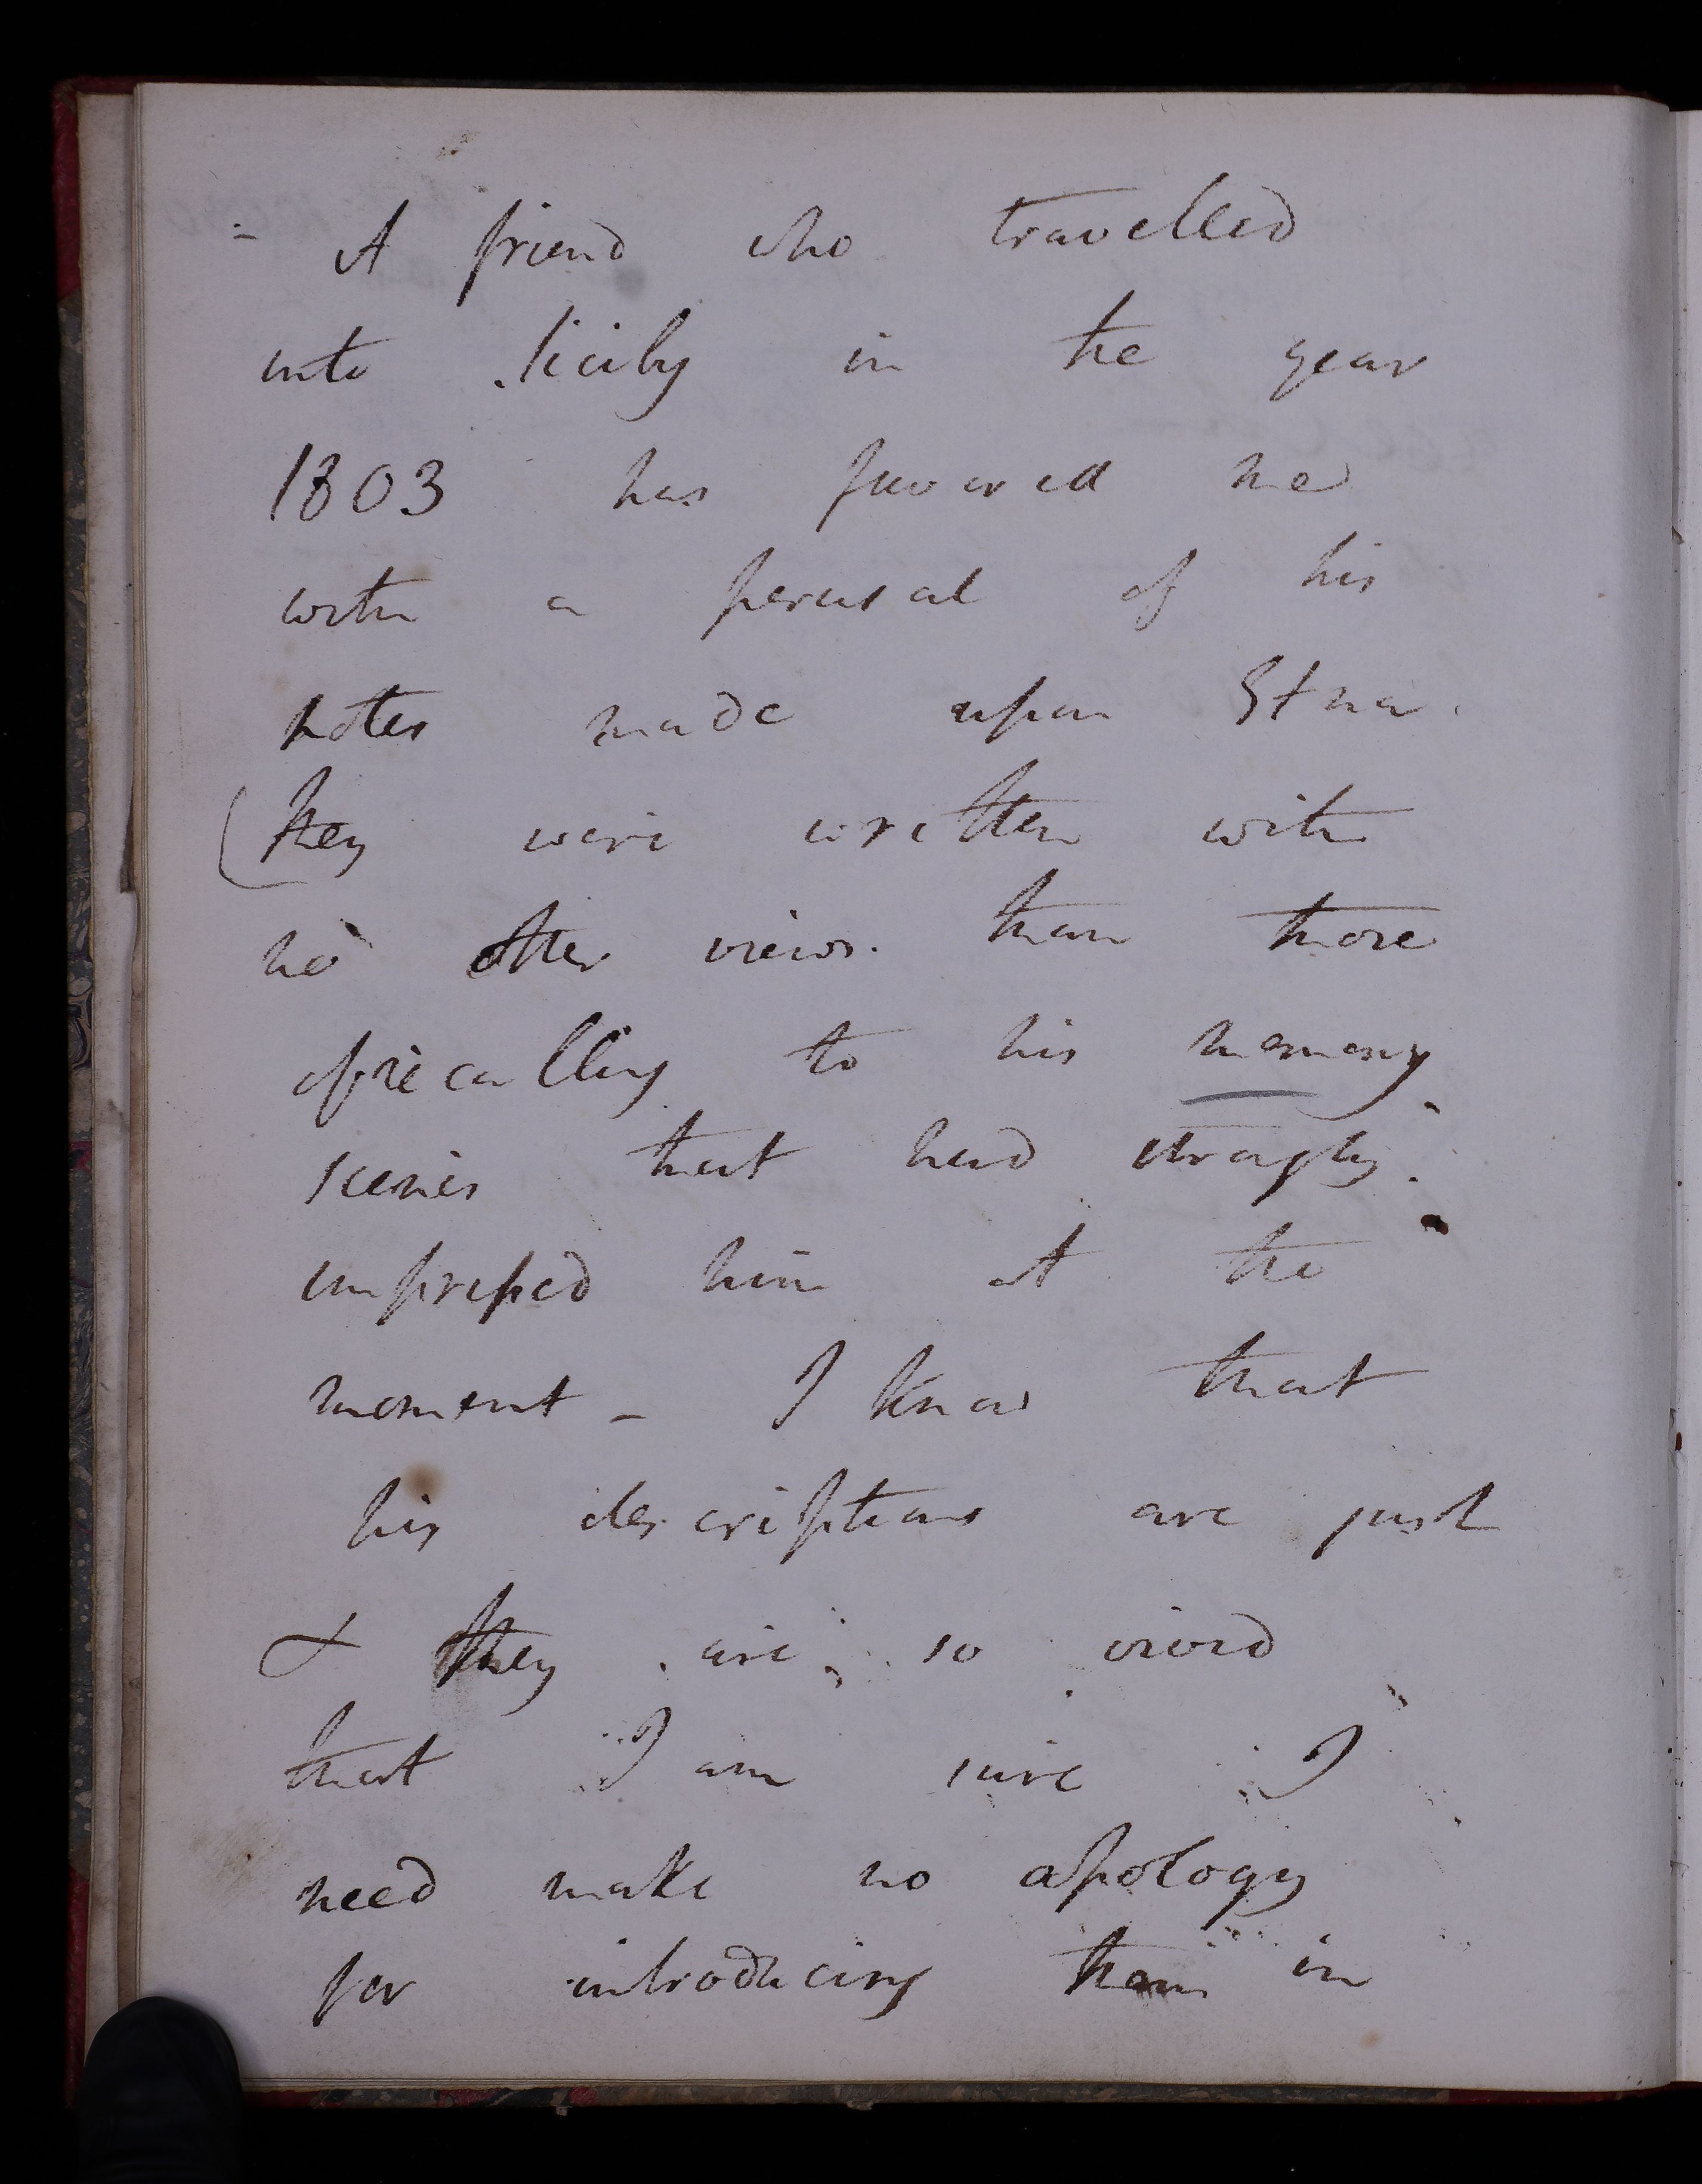 - A friend who travelled
into Sicily in the year
1803 has favored me
with a perusal of his
notes made upon Etna.
(they were written with
no other views. than those
of recalling to his memory
scenes that had strongly
impressed him at the
moment - I know that
his descriptions are just
& they are so vivid
that I am sure I
need make no apology
for introducing them in